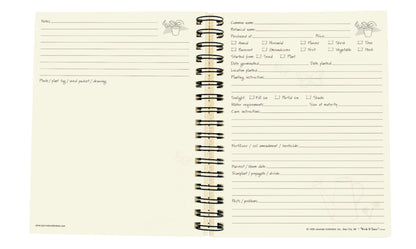 Notes
Photo / plant tag / seed packet / drawing
www.journalsunlimited.com
Common name
Botanical name
Purchased at Price
Annual Perennial Flower Shrub Tree
Biennial Groundcover Fruit Vegetable Herb
Started from: Seed Plant
Date germinated Date planted
Location planted
Planting instructions
Sunlight: Full sun Partial sun Shade
Water requirements Size at maturity
Care instructions
Fertilizer / soil amendment / herbicide
Harvest / bloom date
Transplant / propagate / divide
Pests / problems
Journals Unlimited, Inc. Bay City, MI "Write it Down"